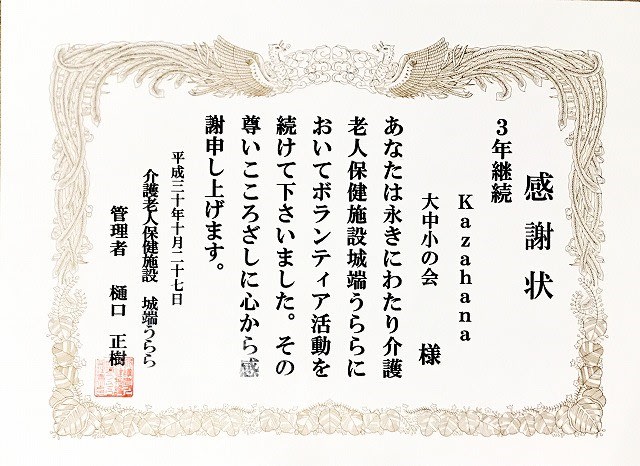 感謝状
3年継続
Kazahana
大中小の会 様
あなたは永きにわたり介護
老人保健施設城端うららに
おいてボランティア活動を
続けて下さいました。その
尊いこころざしに心から感
謝申し上げます。
平成三十年十月二十七日
介護老人保健施設 城端うらら
管理者 樋口 正樹